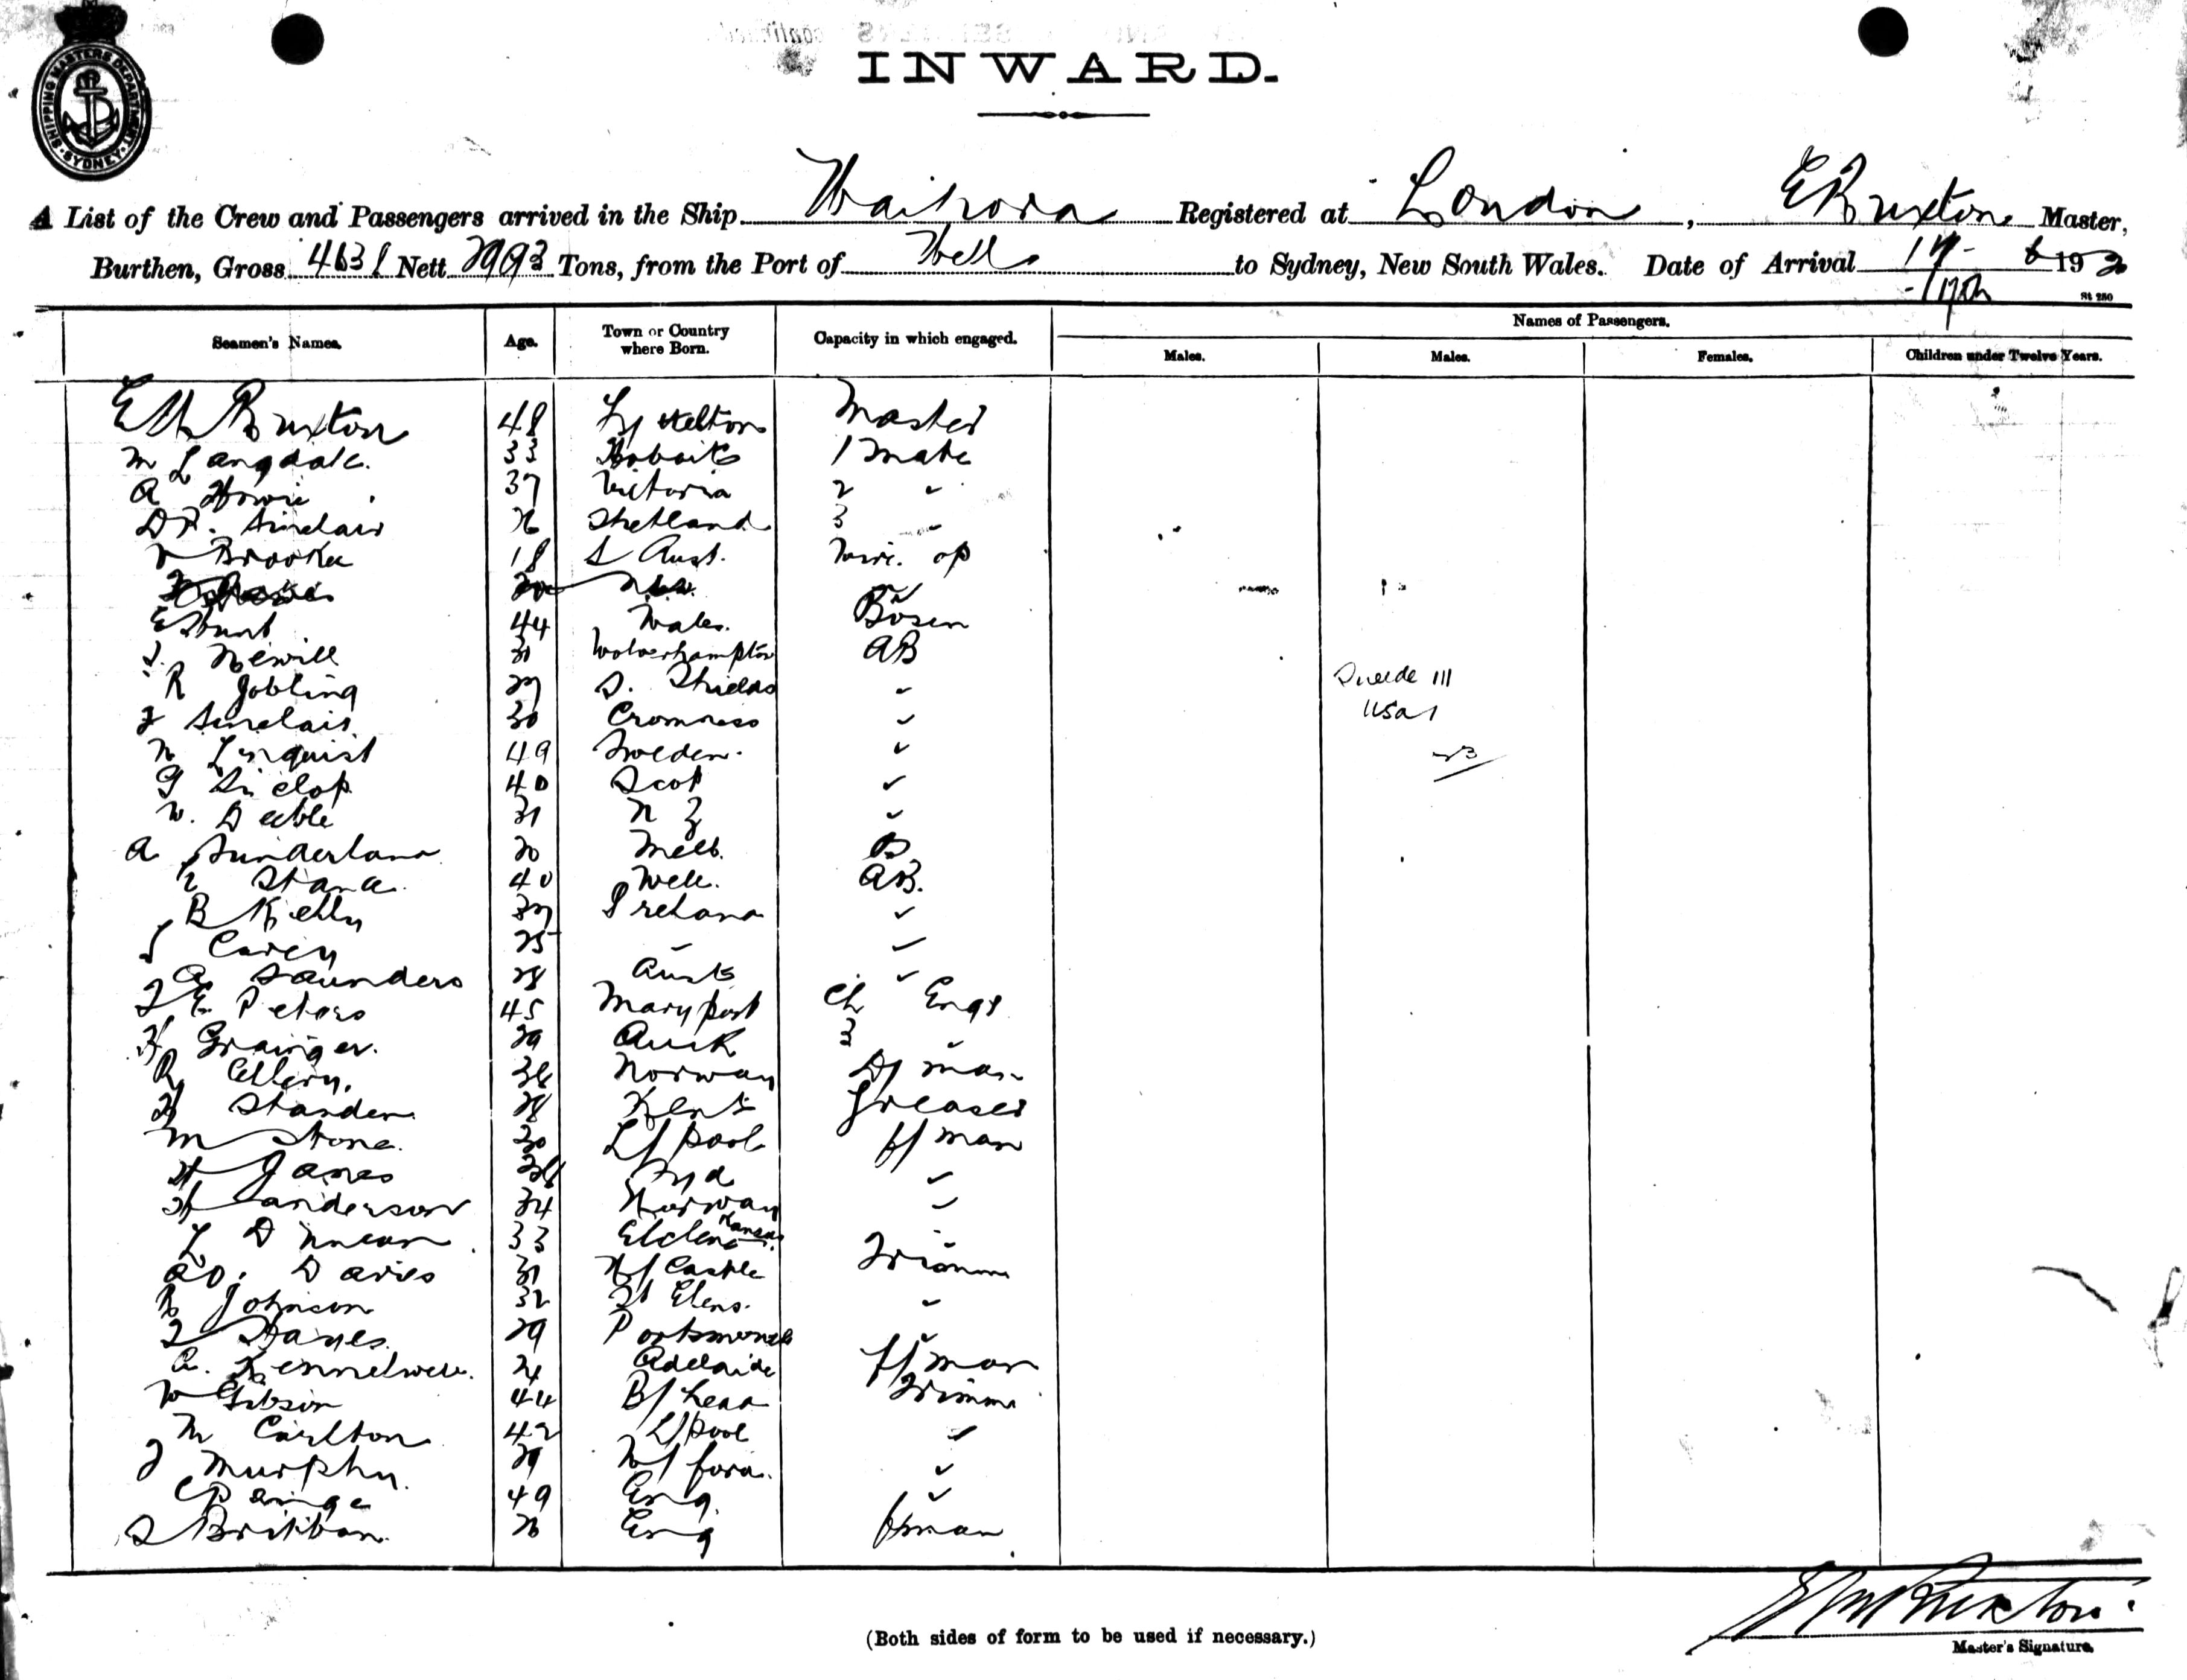 SHIPPING MASTERS DEPARTMENT
SYDNEY
INWARD.
A List of the Crew and Passengers arrived in the Ship Waihora Registered at London, E Buxton Master,
Burthen, Gross 4638 Nett 2993 Tons, from the Port of Well to Sydney, New South Wales. Date of Arrival 17- 6 1920
17th
St 280
Seamen's Names. Age. Town or Country where Born. Capacity in which engaged. Names of Passengers.
Males. Males. Females. Children under Twelve Years.
E M Buxton 48 Lyttelton Master
M Langdale. 33 1 Mate
A Howie 37 Victoria 2 "
D F. Sinclair 26 Shetland 3 "
Brooke 18 S Aust. Wire. op
E Hunt 44 Wales. Bosen
J. Newill 31 Wolverhampton AB
R Jobling 27 S. Shields "
J Sinclair 30 Cromness "
N Linquist 49 Sweden. "
G 40 Scot "
W. Deeble 31 N Z "
A Sunderland 20 Melb. B
Stana 40 Well. AB.
B Kielly 37 Ireland "
J Carey 25 " "
A Saunders 28 Aust "
J E Peters 45 Maryport Ch Engr
H Grainger. 29 Auck 3 "
R Ellery. 36 Norway D/man
H Standen 28 Kent Greaser
M Stone. 30 L/pool f/man
H Janes Syd "
H Anderson 34 Norway "
L Duncan 33 Kansas "
A O. Davies 31 N/Castle Trimmr
R Johnson 32 St Elens. "
J Hayes 29 Portsmouth "
A. Kennelwell. 24 Adelaide f/man
W Gibson 44 B/head Trimmr
M Carlton 42 L/pool "
J Murphy 29 "
49 Eng. "
J Brittan 26 Eng fman
Swede III
USA 1
(Both sides of form to be used if necessary.)
E M Buxton
Master's Signature.